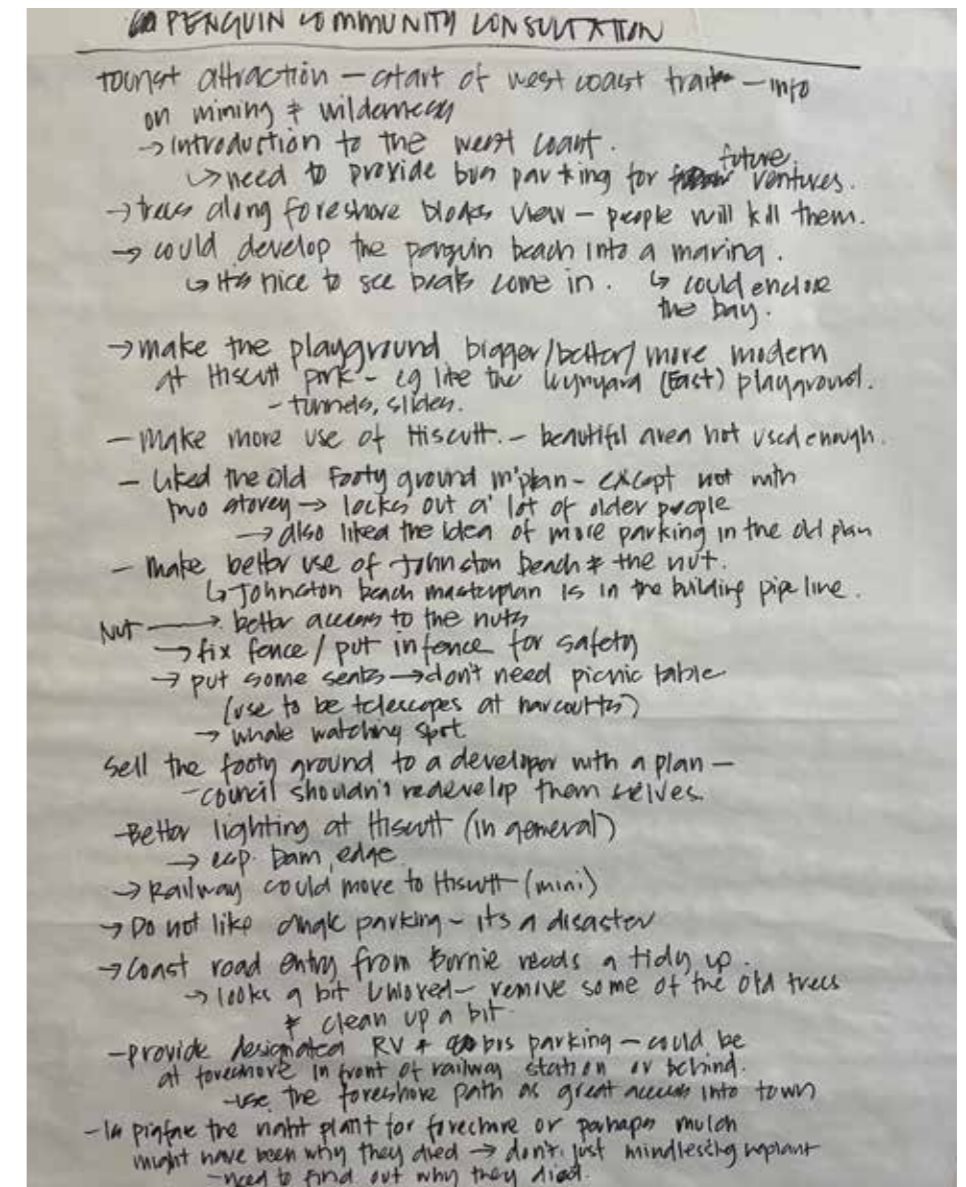 PENGUIN COMMUNITY CONSULTATION
tourist attraction - start of west coast trail - info
on mining & wilderness
→ introduction to the west coast.
↳ need to provide bus parking for future ventures.
→ trees along foreshore blocks view - people will kill them.
→ could develop the penguin beach into a marina.
↳ it's nice to see boats come in. ↳ could enclose
the bay.
→ make the playground bigger/better/more modern
at Hiscutt park - eg like the Wynyard (East) playground.
- tunnels, slides.
- make more use of Hiscutt. - beautiful area not used enough.
- Liked the old Footy ground m'plan - except not with
two storey → locks out a lot of older people
→ also liked the idea of more parking in the old plan
- make better use of Johnston beach & the nut.
↳ Johnston beach masterplan is in the building pipe line.
Nut → better access to the nuts
→ fix fence / put in fence for safety
→ put some seats → don't need picnic table
(use to be telescopes at harcourts)
→ whale watching spot
Sell the footy ground to a developer with a plan -
- council shouldn't redevelop them selves.
- Better lighting at Hiscutt (in general)
→ esp. Dam edge
→ Railway could move to Hiscutt (mini)
→ Do not like angle parking - its a disaster
→ Coast road entry from Burnie needs a tidy up.
→ looks a bit unloved - remove some of the old trees
& clean up a bit.
- provide designated RV & bus parking - could be
at foreshore in front of railway station or behind.
- use the foreshore path as great access into town
- Is pigface the right plant for foreshore or perhaps mulch
might have been why they died → don't just mindlessly replant
- need to find out why they died.